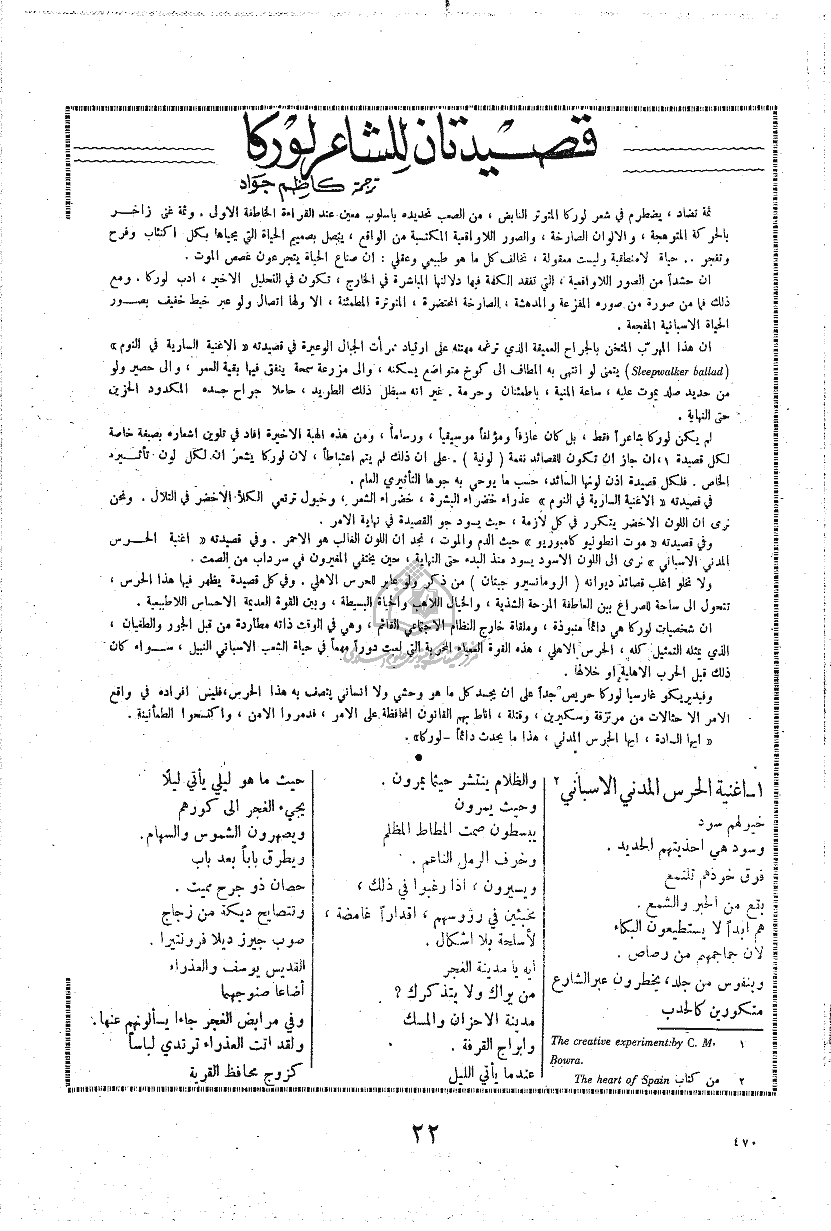 قصيدتان للشاعر لوركا
ترجمة كاظم جواد
ثمة تضاد ، يضطرم في شعر لوركا المتوتر النابض ، من الصعب تحديده باسلوب معين عند القراءة الخاطفة الاولى . وثمة غنى زاخر
بالحركة المتوهجة ، والالوان الصارخة ، والصور اللاواقعية المكتسبة من الواقع ، يتصل بصميم الحياة التي يحياها بكل اكتئاب وفرح
وتفجر .. حياة لامنطقية وليست معقولة ، تخالف كل ما هو طبيعي وعقلي : ان صناع الحياة يتجرعون غصص الموت .
ان حشداً من الصور اللاواقعية ، التي تفقد الكلمة فيها دلالتها المباشرة في الخارج ، تكون في التحليل الاخير ، ادب لوركا . ومع
ذلك فما من صورة من صوره المفزعة والمدهشة ، الصارخة المحتضرة ، المتوترة المطمئنة ، الا ولها اتصال ولو عبر خيط خفيف بصور
الحياة الاسبانية المفجعة .
ان هذا المهرب المثخن بالجراح العميقة الذي ترغمه مهنته على ارتياد ممرات الجبال الوعيرة في قصيدته « الاغنية السارية في النوم »
(Sleepwalker ballad) يتمنى لو انتهى به المطاف الى كوخ متواضع يسكنه ، والى مزرعة سمحة ينفق فيها بقية العمر ، والى حصير ولو
من حديد صلد يموت عليه ، ساعة المنية ، باطمئنان وحرمة . غير انه سيظل ذلك الطريد ، حاملا جراح جسده المكدود الحزين
حتى النهاية .
لم يكن لوركا شاعراً فقط ، بل كان عازفاً ومؤلفاً موسيقياً ، ورساماً ، ومن هذه الهبة الاخيرة افاد في تلوين اشعاره بصيغة خاصة
لكل قصيدة ١ ، ان جاز ان تكون للقصائد نغمة ( لونية ) . على ان ذلك لم يتم اعتباطاً ، لان لوركا يشعر ان لكل لون تأثيره
الخاص . فلكل قصيدة اذن لونها السائد ، حسب ما يوحي به جوها التأثيري العام .
في قصيدته « الاغنية السارية في النوم » عذراء خضراء البشرة ، خضراء الشعر ، وخيول ترتعي الكلأ الاخضر في التلال . ونحن
نرى ان اللون الاخضر يتكرر في كل لازمة ، حيث يسود جو القصيدة في نهاية الامر .
وفي قصيدته « موت انطونيو كامبوريو » حيث الدم والموت ، نجد ان اللون الغالب هو الاحمر . وفي قصيدته « اغنية الحرس
المدني الاسباني » نرى الى اللون الاسود يسود منذ البدء حتى النهاية ، حين يختفي المغيرون في سرداب من الصمت .
ولا تخلو اغلب قصائد ديوانه ( الرومانسيرو جيتان ) من ذكر ولو عابر للحرس الاهلي . وفي كل قصيدة يظهر فيها هذا الحرس ،
تتحول الى ساحة للصراع بين العاطفة المرحة الشذية ، والخيال اللاهب والحياة البسيطة ، وبين القوة العديمة الاحساس اللاطبيعية .
ان شخصيات لوركا هي دائماً منبوذة ، وملقاة خارج النظام الاجتماعي القائم ، وهي في الوقت ذاته مطاردة من قبل الجور والطغيان ،
الذي يمثله التمثيل كله ، الحرس الاهلي ، هذه القوة العمياء المخربة التي لعبت دوراً مهماً في حياة الشعب الاسباني النبيل ، سواء كان
ذلك قبل الحرب الاهلية او خلالها .
وفيديريكو غارسيا لوركا حريص جداً على ان يجسد كل ما هو وحشي ولا انساني يتصف به هذا الحرس ، فليس افراده في واقع
الامر الا حثالات من مرتزقة وسكيرين ، وقتلة ، اناط بهم القانون المحافظة على الامر ، فدمروا الامن ، واكتسحوا الطمأنينة .
« ايها السادة ، ايها الحرس المدني ، هذا ما يحدث دائماً – لوركا» .
١ – اغنية الحرس المدني الاسباني ٢
خيولهم سود
وسود هي احذيتهم الحديد .
فوق خوذهم تلتمع
بقع من الحبر والشمع .
هم ابداً لا يستطيعون البكاء
لان جماجمهم من رصاص .
وبنفوس من جلد ، يخطرون عبر الشارع
متكورين كالحدب
١ The creative experiment:by C. M.
Bowra.
٢ من كتاب The heart of Spain
والظلام ينتشر حيثما يمرون .
وحيث يمرون
يبسطون صمت المطاط المظلم
وخوف الرمل الناعم .
ويسيرون ، اذا رغبوا في ذلك ،
مخبئين في رؤوسهم ، اقداراً غامضة ،
لأسلحة بلا اشكال .
ايه يا مدينة الغجر
من يراك ولا يتذكرك ؟
مدينة الاحزان والمسك
وابراج القرفة .
عندما يأتي الليل
حيث ما هو ليلي يأتي ليلًا
يجيء الغجر الى كورهم
ويصهرون الشموس والسهام.
ويطرق باباً بعد باب
حصان ذو جرح مميت .
وتتصايح ديكة من زجاج
صوب جيرز ديلا فرونتيرا .
القديس يوسف والعذراء
أضاعا صنوجهما
وفي مرابض الغجر جاءا يسألونهم عنها.
ولقد اتت العذراء ترتدي لباساً
كزوج محافظ القرية
٢٢
٤٧٠